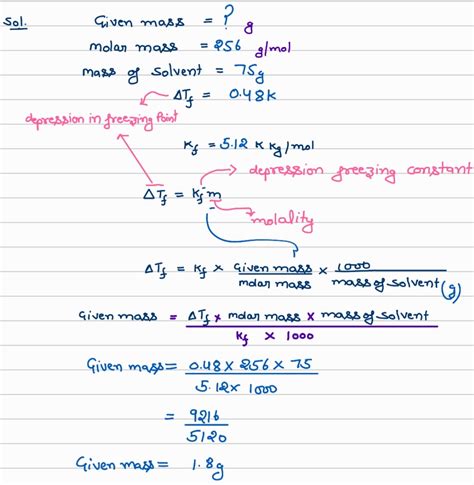 Sol. Given mass = ? g
molar mass = 256 g/mol
mass of solvent = 75g
ΔTf = 0.48K
depression in freezing Point
Kf = 5.12 K Kg/mol
depression freezing constant
ΔTf = Kf m
molality
ΔTf = Kf × Given mass / molar mass × 1000 / mass of solvent (g)
Given mass = ΔTf × molar mass × mass of solvent / Kf × 1000
Given mass = 0.48 × 256 × 75 / 5.12 × 1000
= 9216 / 5120
Given mass = 1.8g